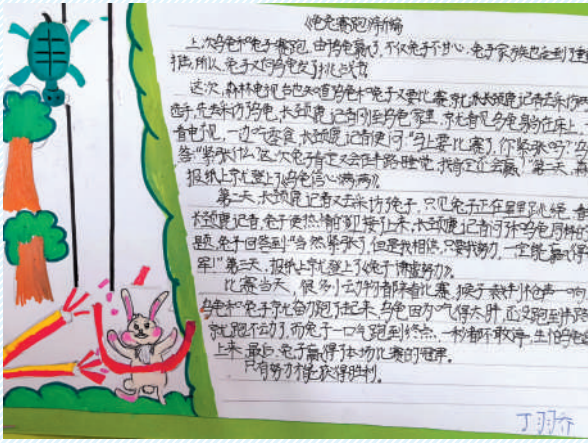 《龟兔赛跑》新编
上次乌龟和兔子赛跑,由乌龟赢了,不仅兔子不甘心,兔子家族也受到了
所以,兔子又向乌龟发了挑战书。
这次,森林电视台也知道乌龟和兔子又要比赛,就派长颈鹿记者去采访
选手,先去采访乌龟,长颈鹿记者刚到乌龟家里,就看见乌龟躺在床上,
看电视,一边吃零食,长颈鹿记者便问:“马上要比赛了,你紧张吗?”乌
答:“紧张什么,这次兔子肯定又会在半路睡觉,我肯定还会赢!”第一天,森
报纸上就登上了《乌龟信心满满》。
第二天,长颈鹿记者又去采访兔子,只见兔子正在屋里跳绳,看
长颈鹿记者,兔子便热情的迎接记来,长颈鹿记者问了和乌龟同样的
题,兔子回答到:“当然紧张了,但是我相信,只要我努力,一定能赢得
军!”第三天,报纸上就登上了《兔子
努力》。
比赛当天,很多小动物都来看比赛,猴子裁判枪声一响,
乌龟和兔子就奋力跑了起来,乌龟因为吃得太胖,还没跑到半路
就跑不动了,而兔子一口气跑到终点,一秒都不敢停,生怕乌龟追
上来,最后,兔子赢得了本场比赛的冠军。
只有努力才能获得胜利。
丁羽乔